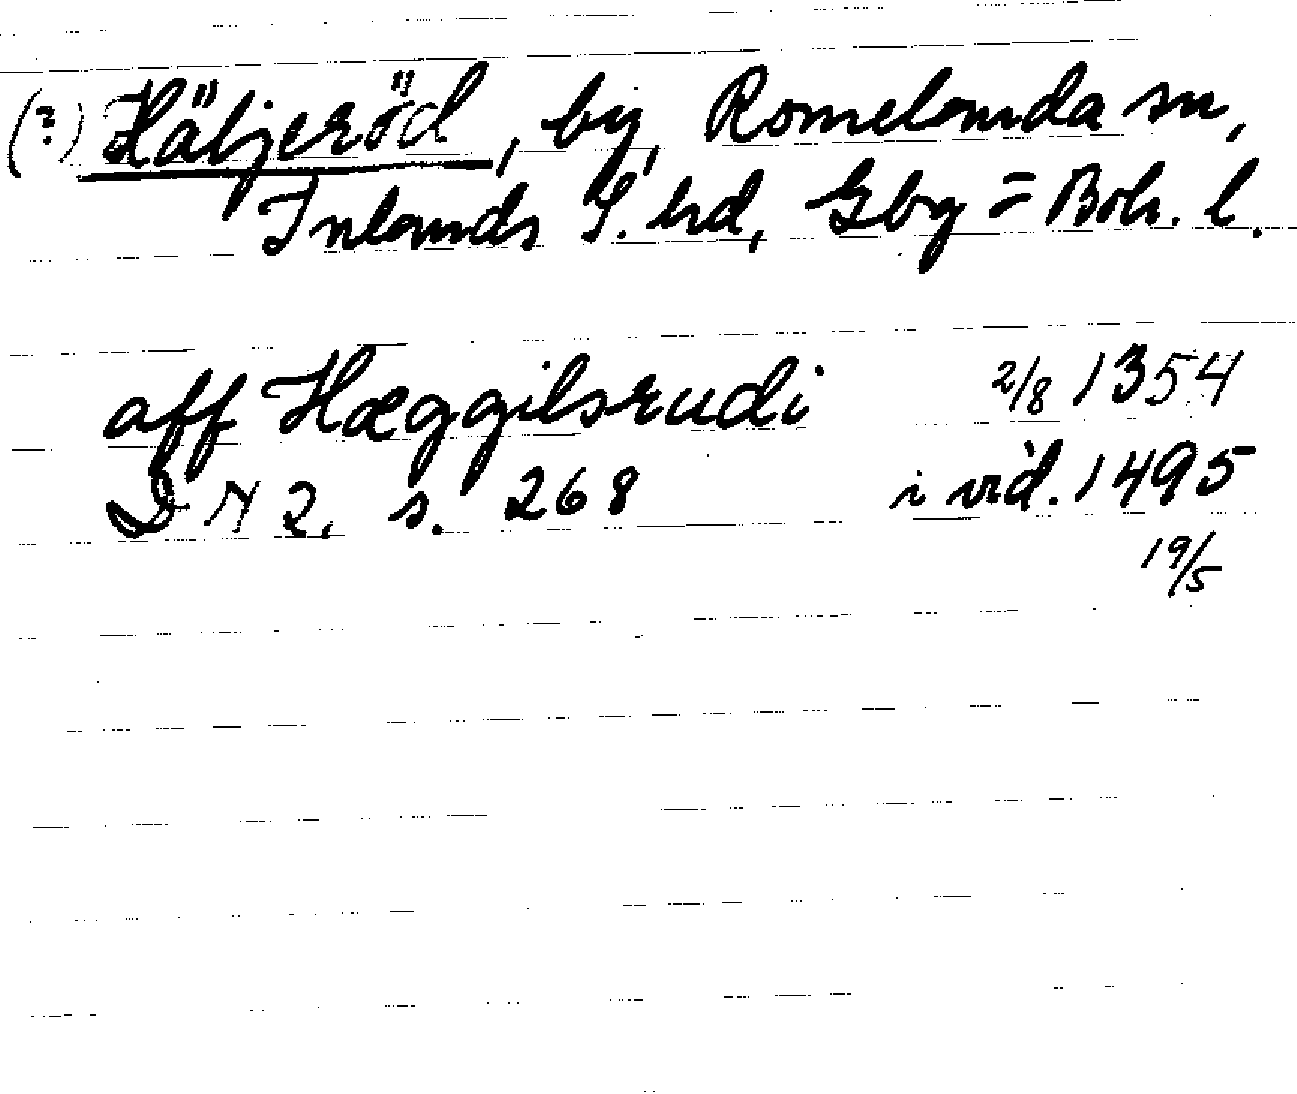 (?) Häljeröd, by, Romelanda sn,
Inlands S. hd, Gbg = Boh. l.
aff Hæggilsrudi 2/8 1354
DN 2, s. 268 i vid. 1495
19/5